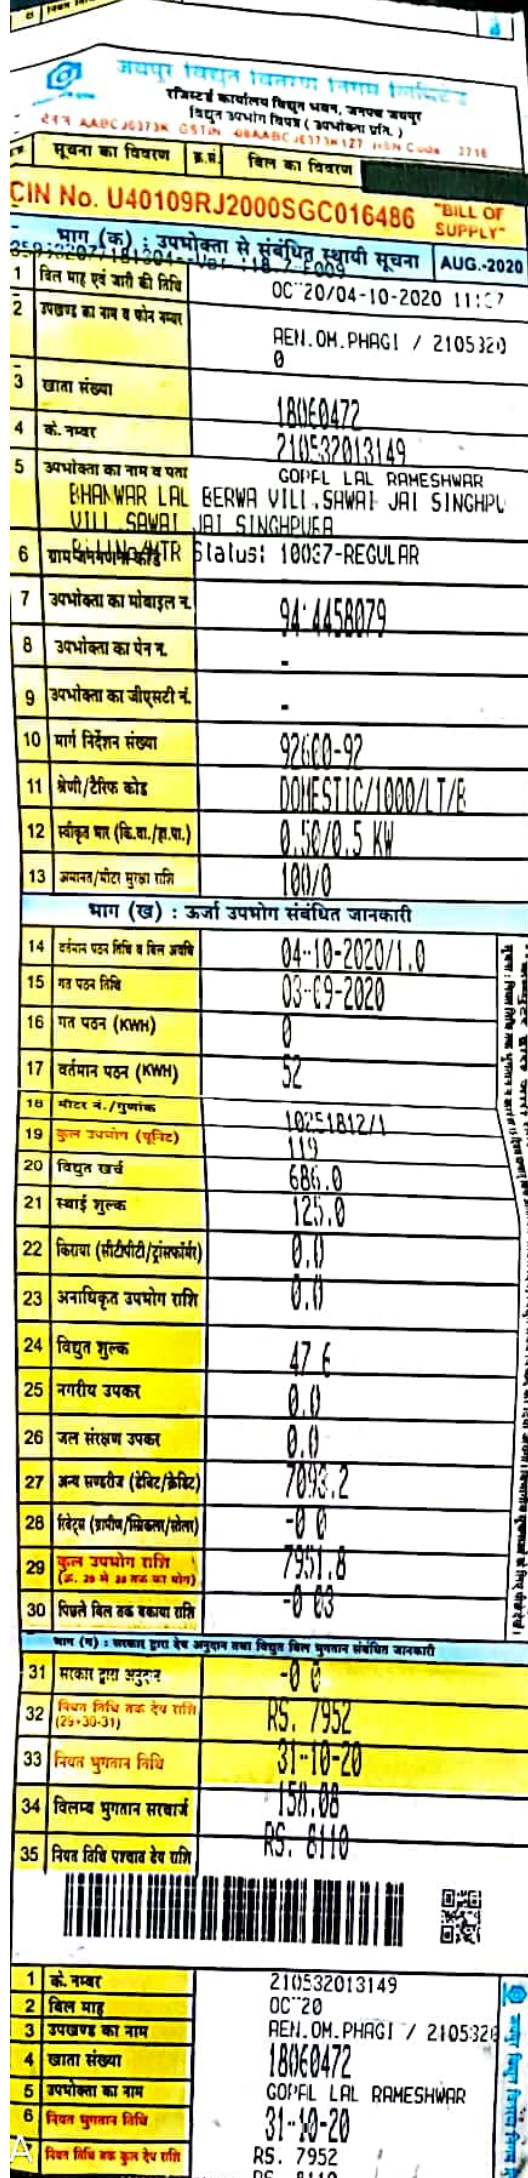 जयपुर विद्युत वितरण निगम लिमिटेड
रजिस्टर्ड कार्यालय विद्युत भवन, जनपथ जयपुर
विद्युत उपभोग विपत्र ( उपभोक्ता प्रति. )
AABCJ6373K GSTIN HSN Code 2716
सूचना का विवरण क्र.सं. बिल का विवरण
CIN No. U40109RJ2000SGC016486 "BILL OF SUPPLY"
भाग (क) : उपभोक्ता से संबंधित स्थायी सूचना AUG.-2020
1 बिल माह एवं जारी की तिथि 20/04-10-2020
2 उपखण्ड का नाम व फोन नम्बर AEN.OM.PHAGI / 2105320
0
3 खाता संख्या 18060472
4 के. नम्बर 210532013149
5 उपभोक्ता का नाम व पता GOPAL LAL RAMESHWAR
BHANWAR LAL BERWA VILL.SAWAI JAI SINGHPU
VILL SAWAI JAI SINGHPURA
6 Status: 10037-REGULAR
7 उपभोक्ता का मोबाइल न.
8 उपभोक्ता का पेन न. -
9 उपभोक्ता का जीएसटी नं. -
10 मार्ग निर्देशन संख्या 92600-92
11 श्रेणी/टैरिफ कोड DOMESTIC/1000/LT/
12 स्वीकृत भार (कि.वा./हा.पा.) 0.50/0.5 KW
13 अमानत/मीटर सुरक्षा राशि 100/0
भाग (ख) : ऊर्जा उपभोग संबंधित जानकारी
14 वर्तमान पठन तिथि व बिल अवधि 04-10-2020/1.0
15 गत पठन तिथि 03-09-2020
16 गत पठन (KWH) 0
17 वर्तमान पठन (KWH) 52
18 मीटर नं./गुणांक 10251812/1
19 कुल उपभोग (यूनिट) 119
20 विद्युत खर्च 686.0
21 स्थाई शुल्क 125.0
22 किराया (सीटीपीटी/ट्रांसफॉर्मर) 0.0
23 अनाधिकृत उपभोग राशि 0.0
24 विद्युत शुल्क 47.6
25 नगरीय उपकर 0.0
26 जल संरक्षण उपकर 0.0
27 अन्य सण्डरीज (डेबिट/क्रेडिट) 7093.2
28 रिबेट्स -0 0
29 कुल उपभोग राशि 7951.8
30 पिछले बिल तक बकाया राशि -0 03
भाग (ग) : सरकार द्वारा देय अनुदान तथा विद्युत बिल भुगतान संबंधित जानकारी
31 सरकार द्वारा अनुदान -0 0
32 नियत तिथि तक देय राशि RS. 7952
(29+30-31)
33 नियत भुगतान तिथि 31-10-20
34 विलम्ब भुगतान सरचार्ज 158.08
35 नियत तिथि पश्चात देय राशि RS. 8110
1 के. नम्बर 210532013149
2 बिल माह 20
3 उपखण्ड का नाम AEN.OM.PHAGI / 2105320
4 खाता संख्या 18060472
5 उपभोक्ता का नाम GOPAL LAL RAMESHWAR
6 नियत भुगतान तिथि 31-10-20
नियत तिथि तक कुल देय राशि RS. 7952